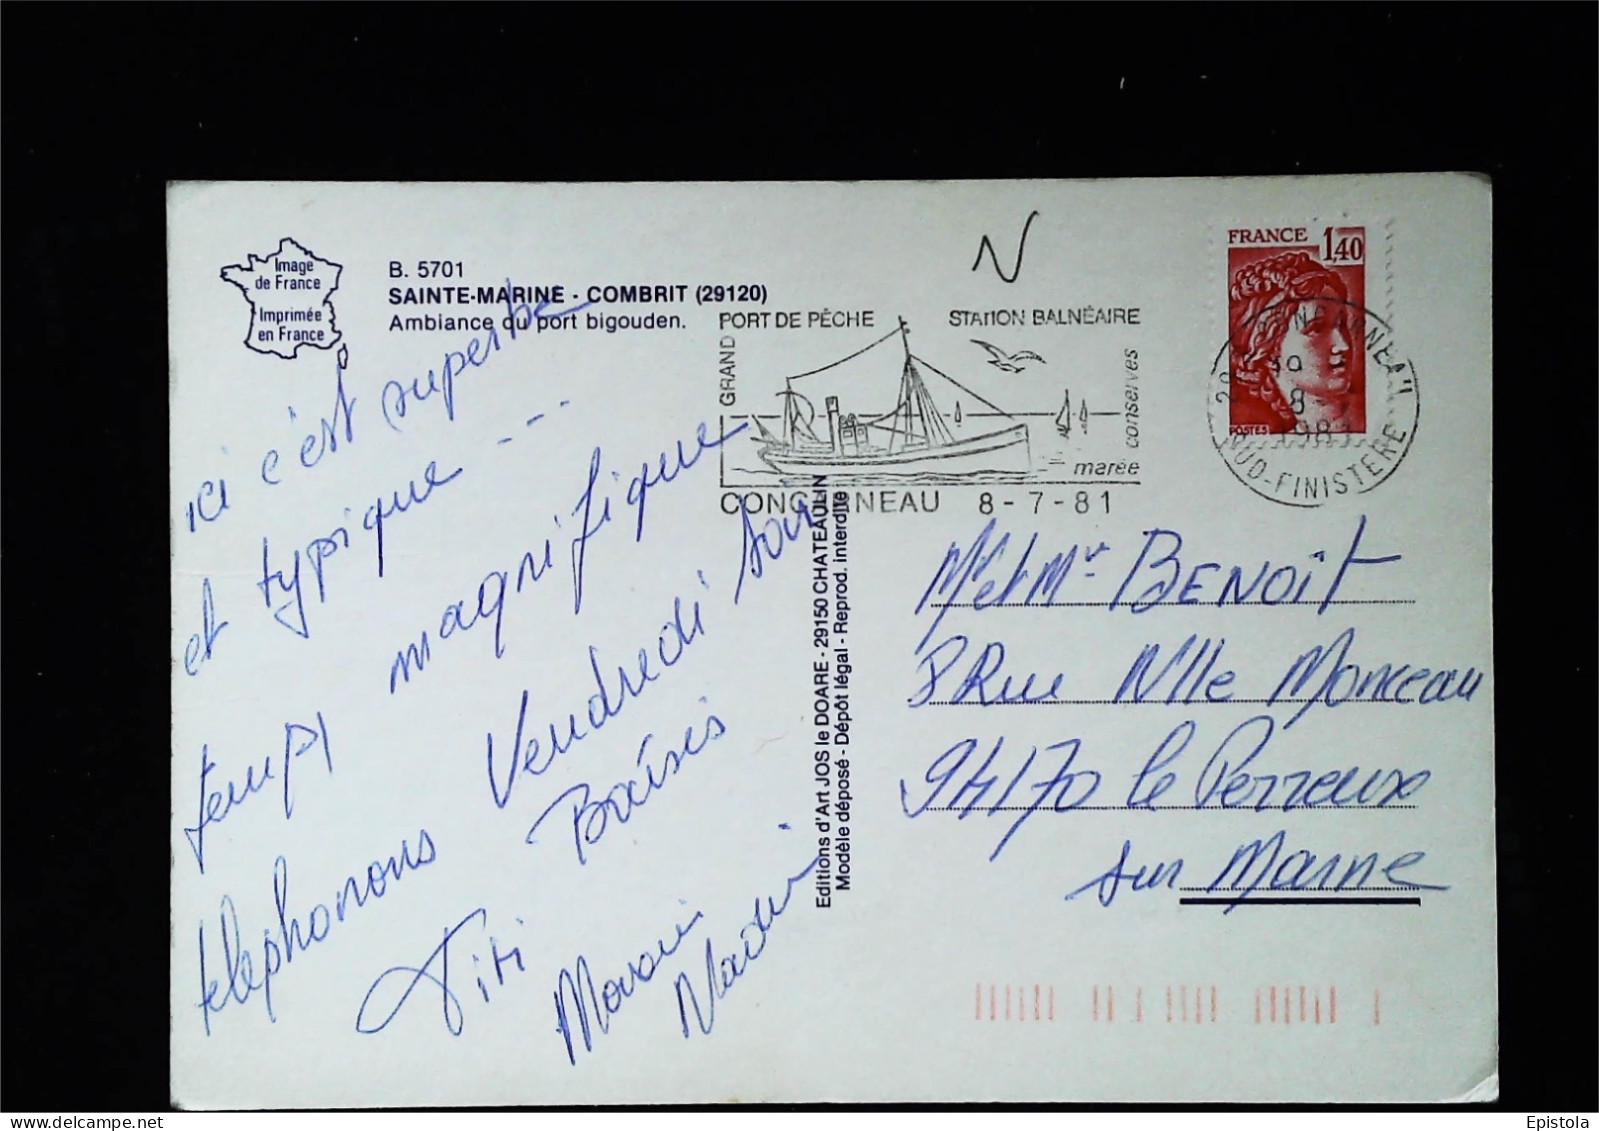 Image
de France
Imprimée
en France
B. 5701
SAINTE-MARINE - COMBRIT (29120)
Ambiance du port bigouden.
N
GRAND PORT DE PÊCHE
STATION BALNÉAIRE
conserves
marée
CONCARNEAU 8-7-81
FRANCE 1,40
POSTES
CONCARNEAU
8
SUD-FINISTERE
ici c'est superbe
et typique ---
temps magnifique
telephonons Vendredi soir
Baisers
Titi
Editions d'Art JOS le DOARE - 29150 CHATEAULIN
Modèle déposé - Dépôt légal - Reprod. interdite
Mr et Mme BENOIT
8 Rue Nlle Monceau
94170 le Perreux
sur Marne
Epistola